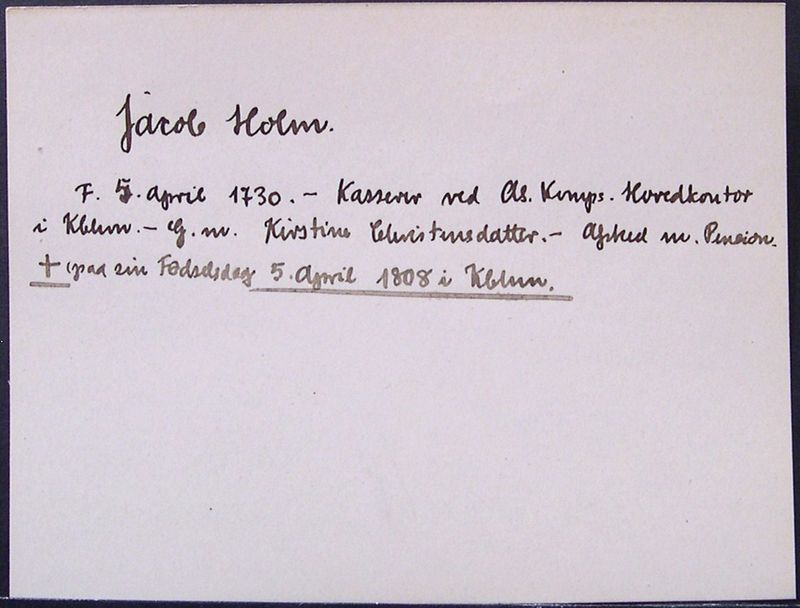 Jacob Holm.
F. 5. April 1730. - Kasserer ved As. Komps. Hovedkontor
i Kbhvn. - G. m. Kirstine Christensdatter. - Afsked m. Pension.
+ (paa sin Fødselsdag 5. April 1808 i Kbhvn.